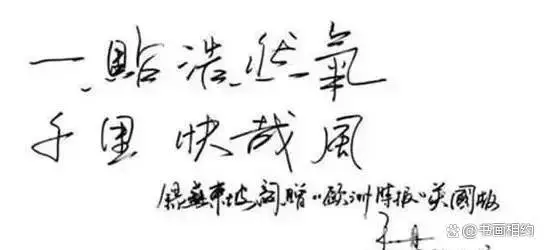 一貼浩然氣
千里快哉風
錄蘇東坡詞贈“歐洲時报”英國版
书画相约